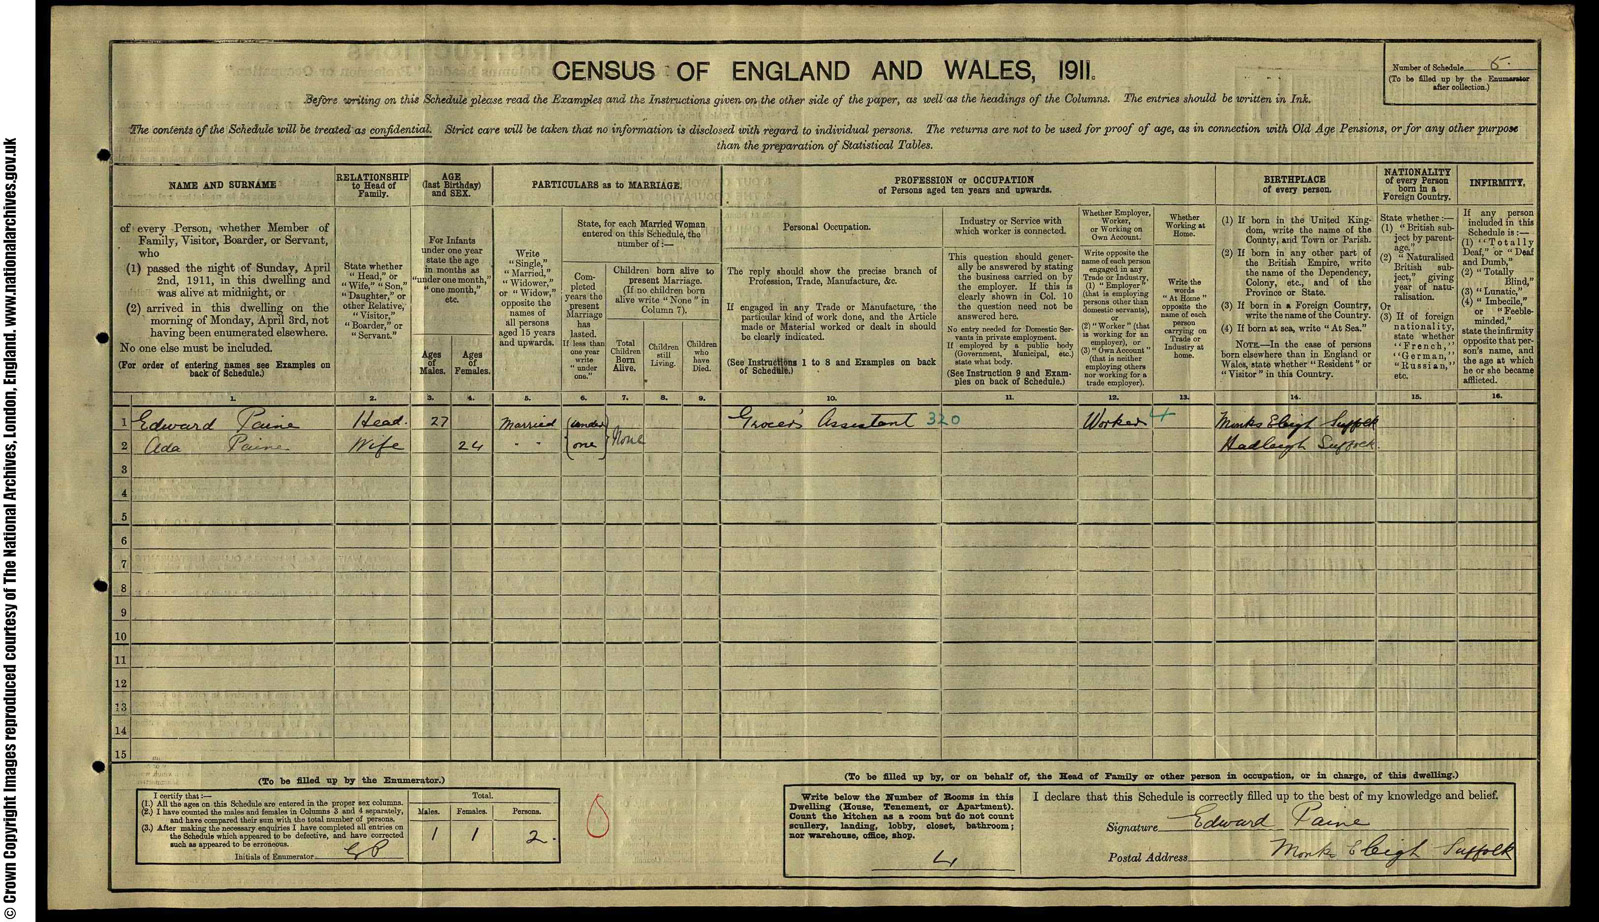 © Crown Copyright Images reproduced courtesy of The National Archives, London, England. www.nationalarchives.gov.uk
CENSUS OF ENGLAND AND WALES, 1911.
Number of Schedule 5.
(To be filled up by the Enumerator
after collection.)
Before writing on this Schedule please read the Examples and the Instructions given on the other side of the paper, as well as the headings of the Columns. The entries should be written in Ink.
The contents of the Schedule will be treated as confidential. Strict care will be taken that no information is disclosed with regard to individual persons. The returns are not to be used for proof of age, as in connection with Old Age Pensions, or for any other purpose
than the preparation of Statistical Tables.
NAME AND SURNAME
of every Person, whether Member of
Family, Visitor, Boarder, or Servant,
who
(1) passed the night of Sunday, April
2nd, 1911, in this dwelling and
was alive at midnight, or
(2) arrived in this dwelling on the
morning of Monday, April 3rd, not
having been enumerated elsewhere.
No one else must be included.
(For order of entering names see Examples on
back of Schedule.)
RELATIONSHIP
to Head of
Family.
State whether
"Head," or
"Wife," "Son,"
"Daughter," or
other Relative,
"Visitor,"
"Boarder," or
"Servant."
AGE
(last Birthday)
and SEX.
For Infants
under one year
state the age
in months as
"under one month,"
"one month,"
etc.
Ages
of
Males.
Ages
of
Females.
PARTICULARS as to MARRIAGE.
Write
"Single,"
"Married,"
"Widower,"
or "Widow,"
opposite the
names of
all persons
aged 15 years
and upwards.
State, for each Married Woman
entered on this Schedule, the
number of:—
Com-
pleted
years the
present
Marriage
has
lasted.
If less than
one year
write
"under
one."
Children born alive to
present Marriage.
(If no children born
alive write "None" in
Column 7).
Total
Children
Born
Alive.
Children
still
Living.
Children
who
have
Died.
PROFESSION or OCCUPATION
of Persons aged ten years and upwards.
Personal Occupation.
The reply should show the precise branch of
Profession, Trade, Manufacture, &c.
If engaged in any Trade or Manufacture, the
particular kind of work done, and the Article
made or Material worked or dealt in should
be clearly indicated.
(See Instructions 1 to 8 and Examples on back
of Schedule.)
Industry or Service with
which worker is connected.
This question should gener-
ally be answered by stating
the business carried on by
the employer. If this is
clearly shown in Col. 10
the question need not be
answered here.
No entry needed for Domestic Ser-
vants in private employment.
If employed by a public body
(Government, Municipal, etc.)
state what body.
(See Instruction 9 and Exam-
ples on back of Schedule.)
Whether Employer,
Worker,
or Working on
Own Account.
Write opposite the
name of each person
engaged in any
Trade or Industry,
(1) "Employer"
(that is employing
persons other than
domestic servants),
or
(2) "Worker" (that
is working for an
employer), or
(3) "Own Account"
(that is neither
employing others
nor working for a
trade employer).
Whether
Working at
Home.
Write the
words
"At Home"
opposite the
name of each
person
carrying on
Trade or
Industry at
home.
BIRTHPLACE
of every person.
(1) If born in the United King-
dom, write the name of the
County, and Town or Parish.
(2) If born in any other part of
the British Empire, write
the name of the Dependency,
Colony, etc., and of the
Province or State.
(3) If born in a Foreign Country,
write the name of the Country.
(4) If born at sea, write "At Sea."
NOTE.—In the case of persons
born elsewhere than in England or
Wales, state whether "Resident" or
"Visitor" in this Country.
NATIONALITY
of every Person
born in a
Foreign Country.
State whether:—
(1) "British sub-
ject by parent-
age."
(2) "Naturalised
British sub-
ject," giving
year of natu-
ralisation.
Or
(3) If of foreign
nationality,
state whether
"French,"
"German,"
"Russian,"
etc.
INFIRMITY.
If any person
included in this
Schedule is:—
(1) "Totally
Deaf," or "Deaf
and Dumb,"
(2) "Totally
Blind,"
(3) "Lunatic,"
(4) "Imbecile,"
or "Feeble-
minded,"
state the infirmity
opposite that per-
son's name, and
the age at which
he or she became
afflicted.
1. 2. 3. 4. 5. 6. 7. 8. 9. 10. 11. 12. 13. 14. 15. 16.
1 Edward Paine Head. 27 Married (under Grocer's Assistant 320 Worker 4 Monks Eleigh Suffolk
2 Ada Paine Wife 24 " " (one) None Hadleigh Suffolk.
3
4
5
6
7
8
9
10
11
12
13
14
15
(To be filled up by the Enumerator.)
I certify that:—
(1.) All the ages on this Schedule are entered in the proper sex columns.
(2.) I have counted the males and females in Columns 3 and 4 separately,
and have compared their sum with the total number of persons.
(3.) After making the necessary enquiries I have completed all entries on
the Schedule which appeared to be defective, and have corrected
such as appeared to be erroneous.
Initials of Enumerator
Total.
Males. Females. Persons.
1 1 2.
0
(To be filled up by, or on behalf of, the Head of Family or other person in occupation, or in charge, of this dwelling.)
Write below the Number of Rooms in this
Dwelling (House, Tenement, or Apartment).
Count the kitchen as a room but do not count
scullery, landing, lobby, closet, bathroom;
nor warehouse, office, shop.
4
I declare that this Schedule is correctly filled up to the best of my knowledge and belief.
Signature Edward Paine
Postal Address Monks Eleigh Suffolk